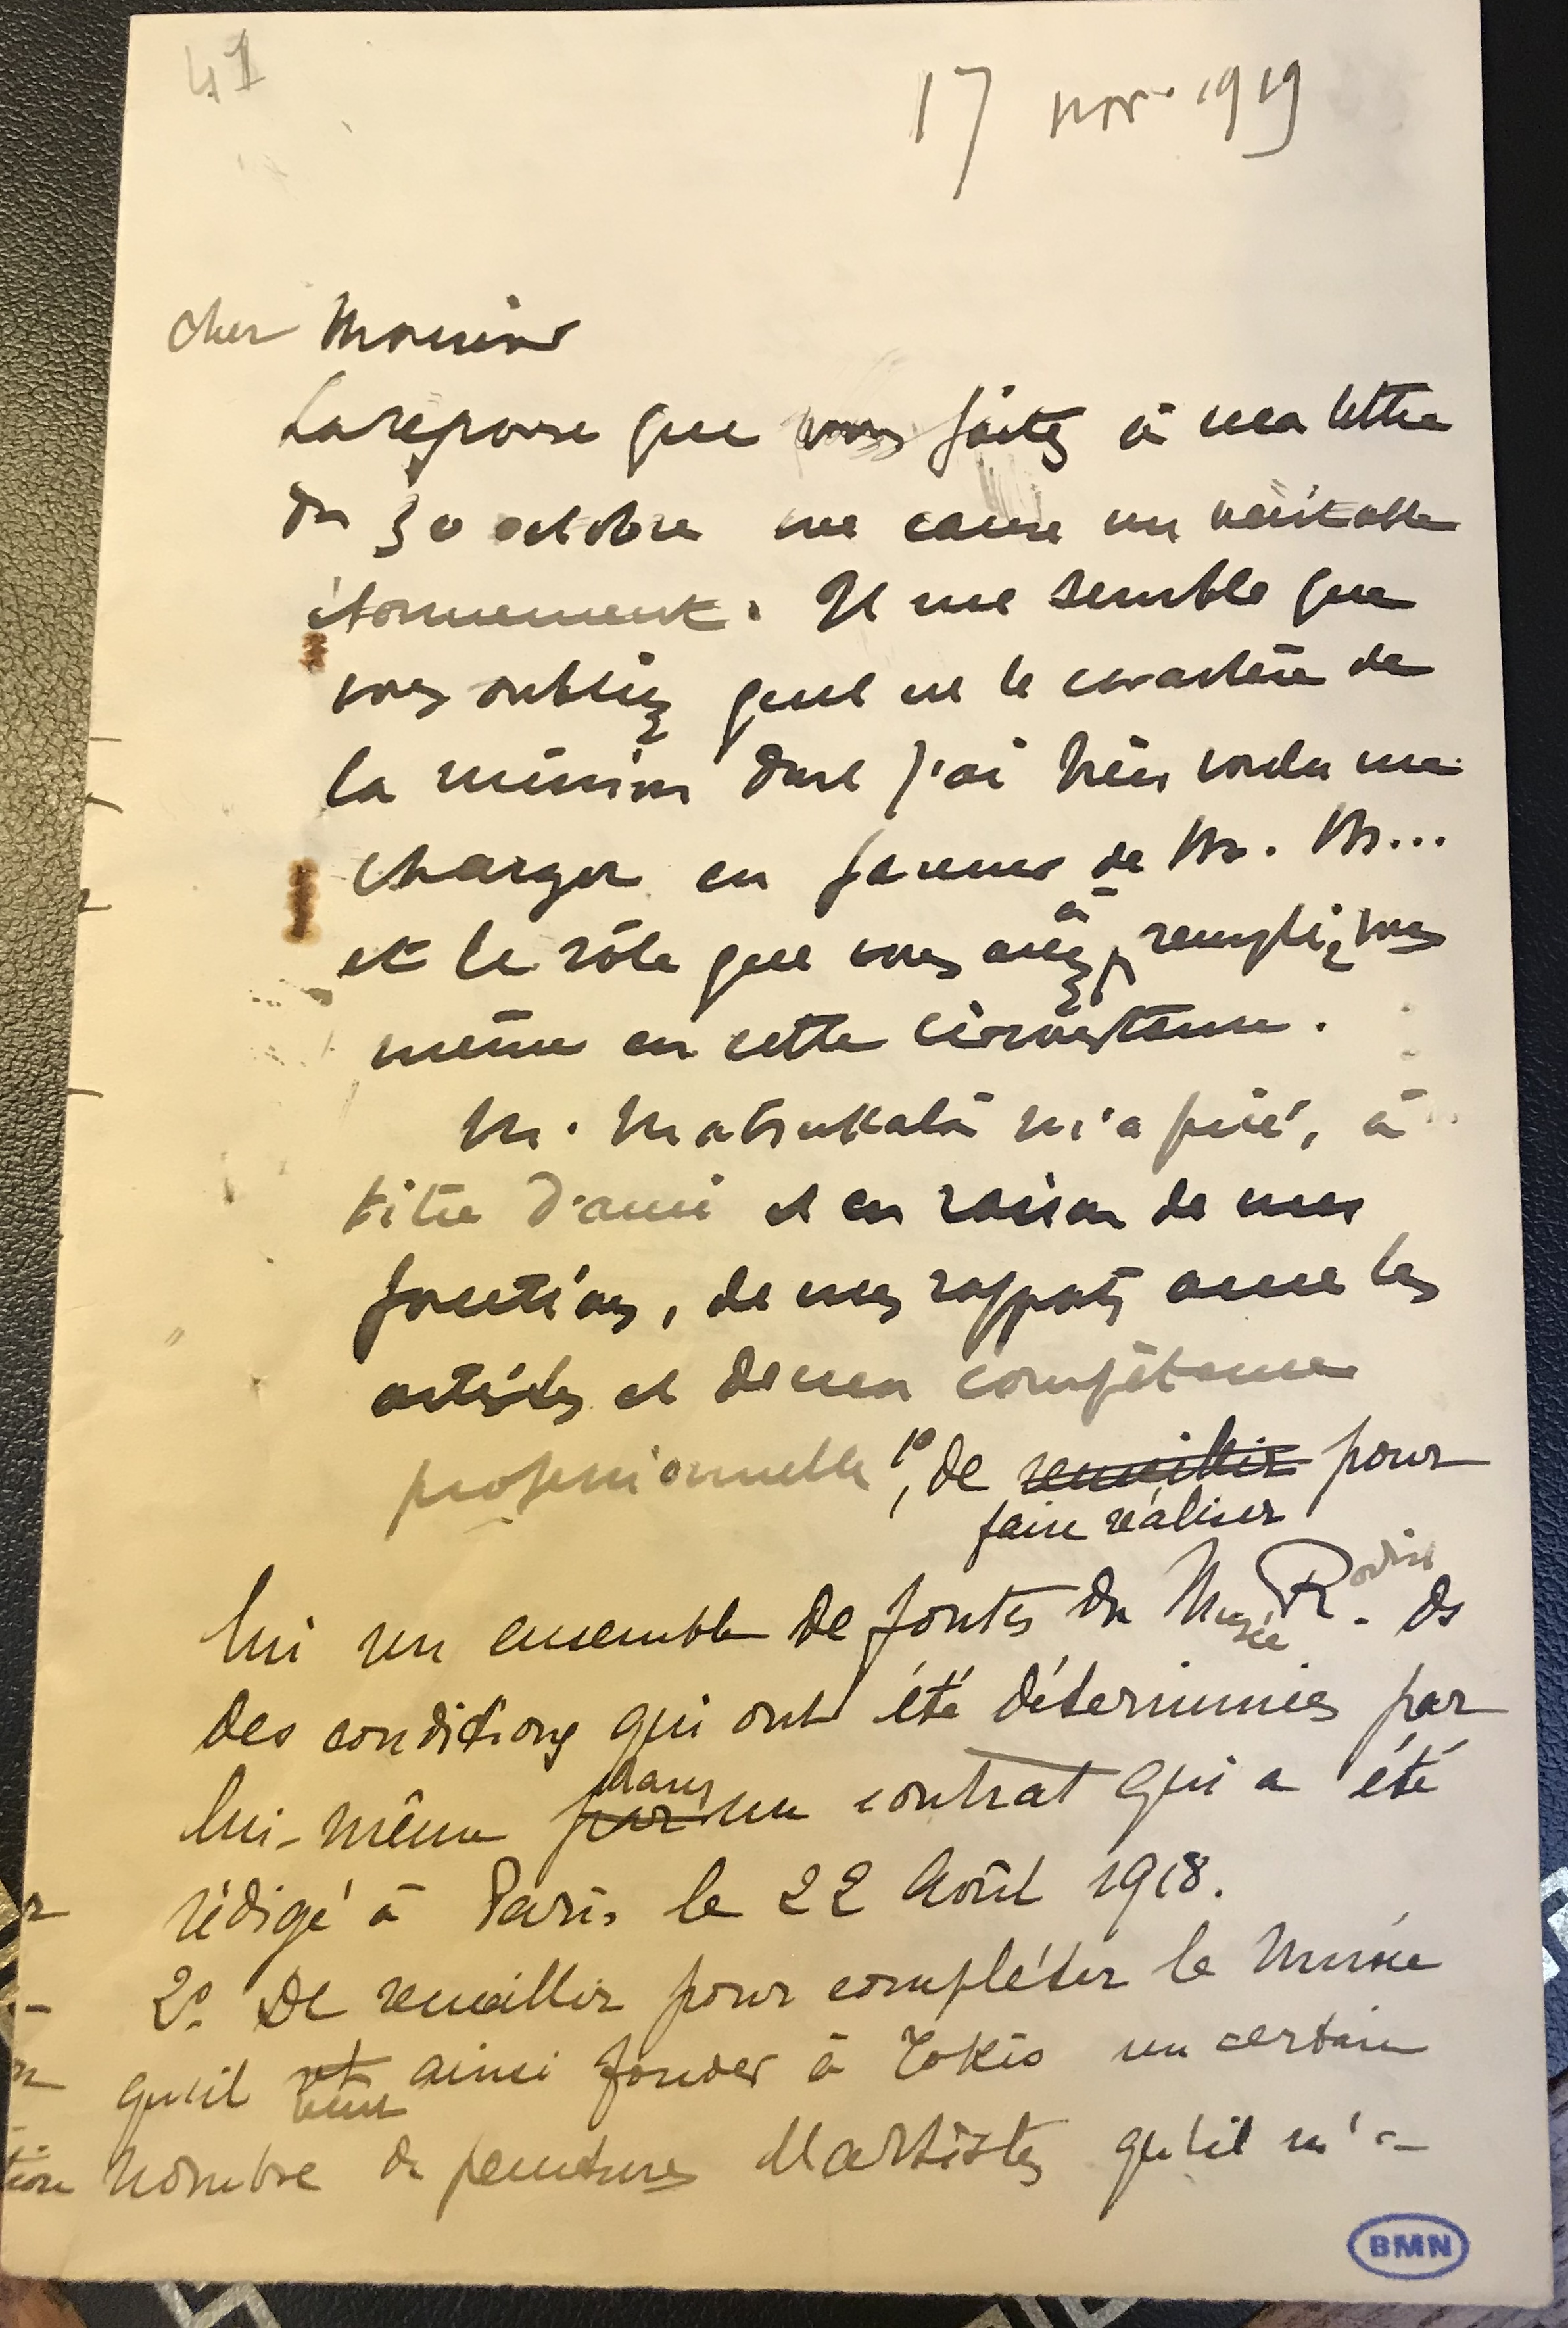 41
17 nov. 1919
cher Monsieur
La réponse que vous faites à ma lettre
du 30 octobre me cause un véritable
étonnement. Il me semble que
vous oubliez quel est le caractère de
la mission dont j'ai bien voulu me
charger en faveur de M. M...
et le rôle que vous avez à remplir vous
même en cette circonstance.
M. Matsukata m'a prié, à
titre d'ami et en raison de mes
fonctions, de mes rapports avec les
artistes et de ma compétence
professionnelle, 1º de recueillir pour
faire réaliser
lui un ensemble de fontes du Musée Rodin. ds
des conditions qui ont été déterminées par
lui-même par dans un contrat qui a été
rédigé à Paris le 22 Août 1918.
2º. De recueillir pour compléter le Musée
qu'il veut ainsi fonder à Tokio un certain
nombre de peintures d'artistes qu'il m'a
BMN